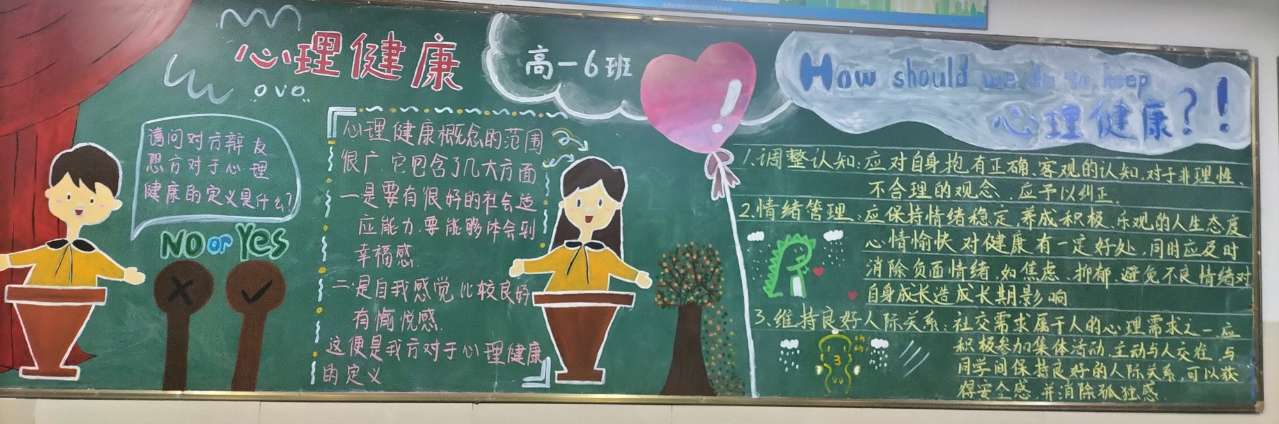 心理健康
高一6班
ovo
请问对方辩友
想方对于心理
健康的定义是什么?
NO or Yes
心理健康概念的范围
很广,它包含了几大方面
一是要有很好的社会适
应能力.要能够体会到
幸福感.
二是自我感觉比较良好
有愉悦感.
这便是我方对于心理健康
的定义
How should we do to keep
心理健康?!
1.调整认知:应对自身抱有正确、客观的认知,对于非理性、
不合理的观念,应予以纠正.
2.情绪管理:应保持情绪稳定,养成积极、乐观的人生态度
心情愉快对健康有一定好处,同时应及时
消除负面情绪,如焦虑、抑郁,避免不良情绪对
自身成长造成长期影响
3.维持良好人际关系:社交需求属于人的心理需求之一,应
积极参加集体活动,主动与人交往,与
同学间保持良好的人际关系,可以获
得安全感,并消除孤独感.